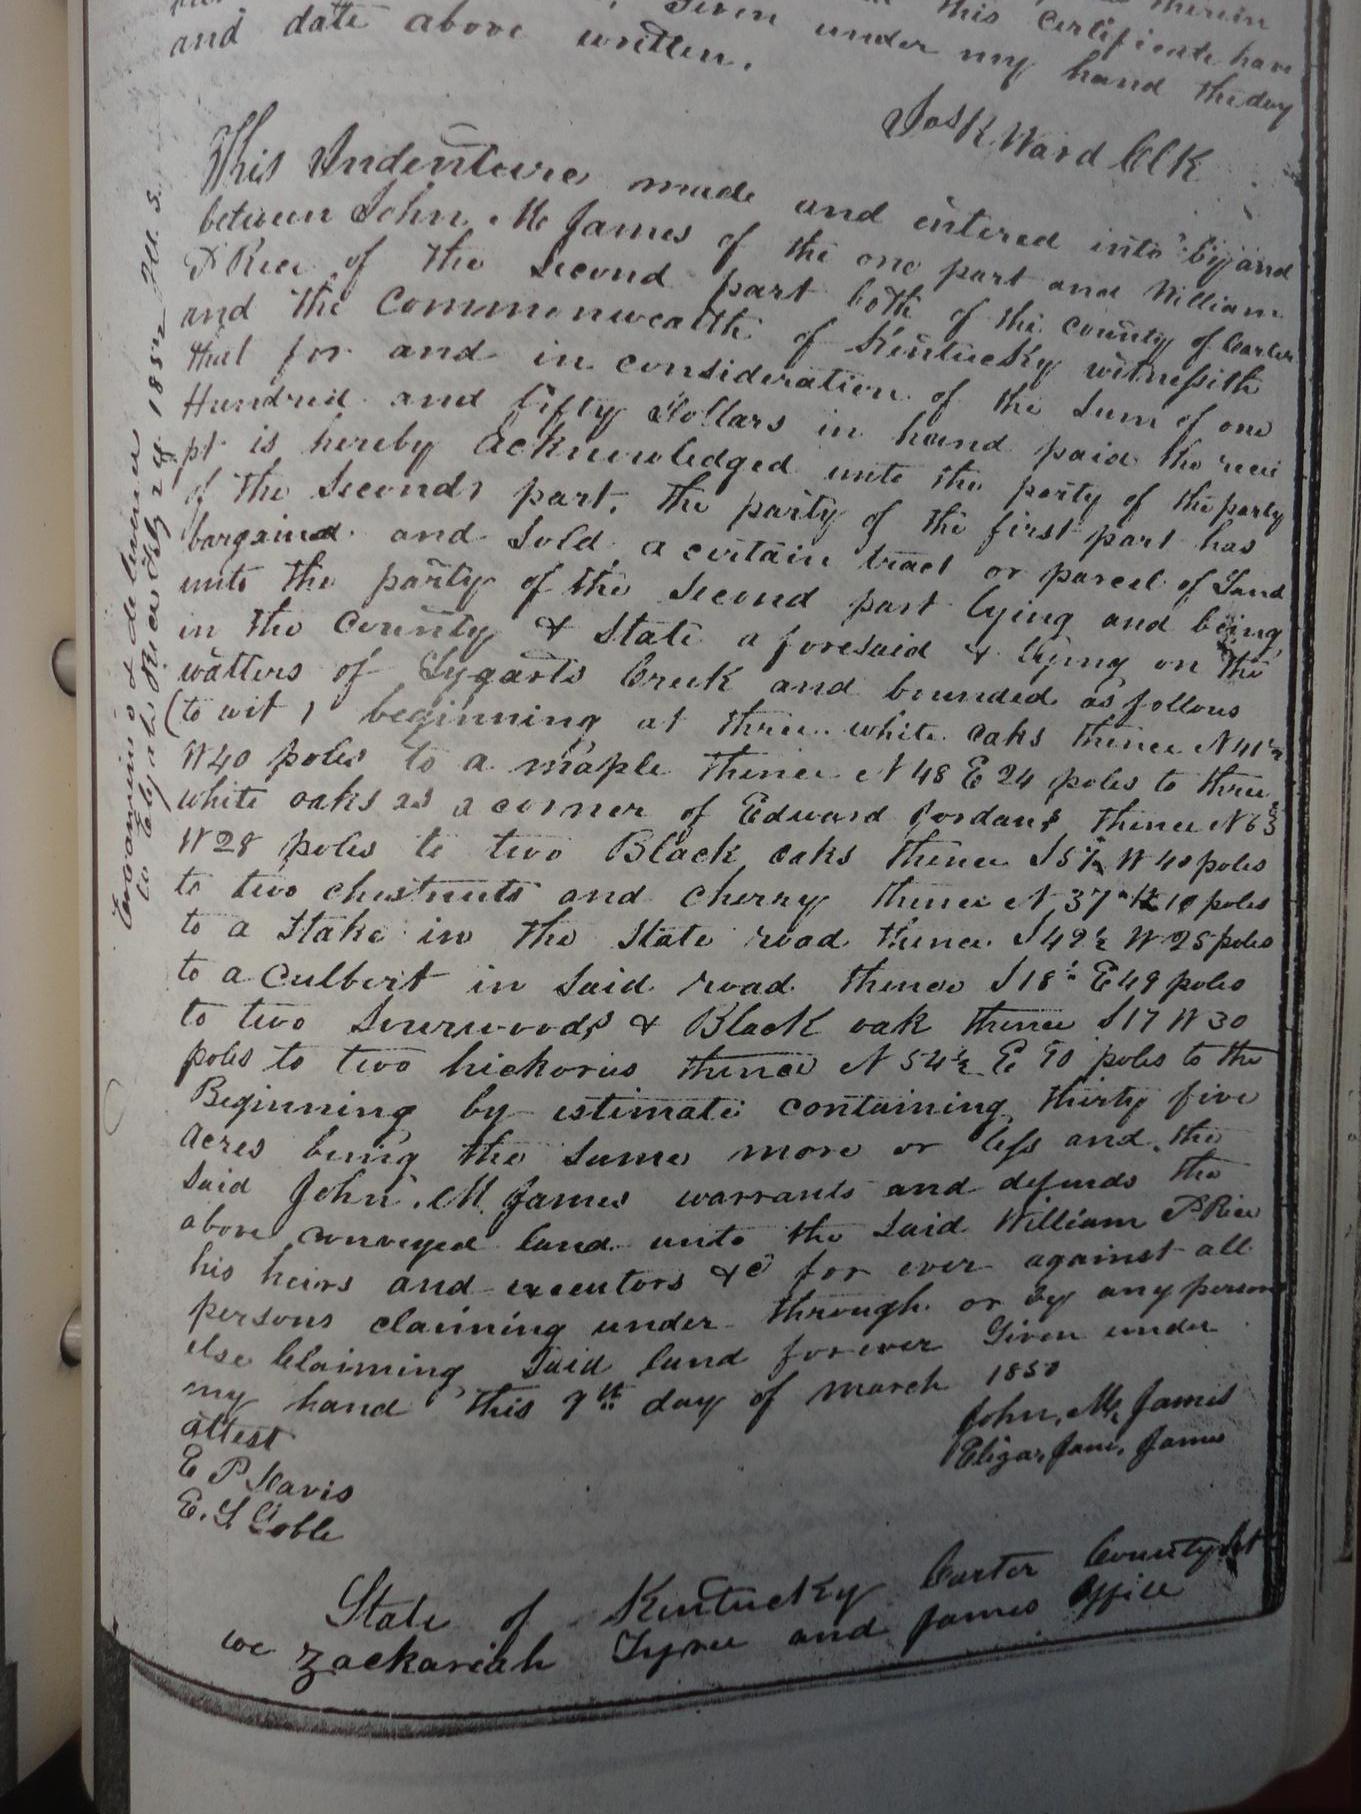 this Certificate have
Given under my hand the day
and date above written.
Jas K. Ward Clk
This Indenture made and entered into by and
between John M James of the one part and William
P Rice of the Second part both of the County of Carter
and the Commonwealth of Kentucky witnesseth
that for and in consideration of the Sum of one
Hundred and fifty Dollars in hand paid the recei
pt is hereby acknowledged unto the party of the party
of the Second part, the party of the first part has
bargained and Sold a certain tract or parcel of Land
unto the party of the Second part lying and being
in the County & State aforesaid & lying on the
watters of Tygarts Creek and bounded as follows
(to wit) beginning at three white oaks thence N 41½
W 40 poles to a maple thence N 48 E 24 poles to three
white oaks as a corner of Edward Jordans thence N 63
W 28 poles to two Black oaks thence S W 40 poles
to two chestnuts and cherry thence N 37 10 poles
to a Stake in the State road thence S 49½ W 25 poles
to a Culbert in Said road thence S 18 E 49 poles
to two Sourwoods & Black oak thence S 17 W 30
poles to two hickories thence N 54½ E poles to the
Beginning by estimate containing thirty five
acres being the Same more or less and the
Said John M James warrants and defends the
above conveyed land unto the Said William P Rice
his heirs and executors &c for ever against all
persons claiming under through or by any person
else Claiming Said land forever Given under
my hand this 7th day of March 1850
John M James
Eligar Jane James
attest
E P Davis
E. S Goble
State of Kentucky Carter County Sct
we Zackariah Tyree and James Office
Examined & delivered
to July 28 1852